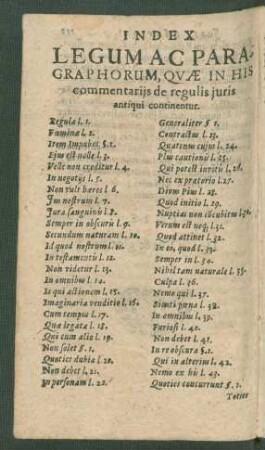 INDEX
LEGUM AC PARA-
GRAPHORUM, QVÆ IN HIS
commentarijs de regulis juris
antiqui continentur.
Regula l. 1.
Fœminæ l. 2.
Item Impubes §. 1.
Ejus est nolle l. 3.
Velle non creditur l. 4.
In negotijs l. 5.
Non vult hæres l. 6.
Jus nostrum l. 7.
Jura sanguinis l. 8.
Semper in obscuris l. 9.
Secundum naturam l. 10.
Id quod nostrum l. 11.
In testamentis l. 12.
Non videtur l. 13.
In omnibus l. 14.
Is qui actionem l. 15.
Imaginaria venditio l. 16.
Cum tempus l. 17.
Quæ legata l. 18.
Qui cum alio l. 19.
Non solet §. 1.
Quoties dubia l. 20.
Non debet l. 21.
In personam l. 22.
Generaliter §. 1.
Contractus l. 23.
Quatenus cujus l. 24.
Plus cautionis l. 25.
Qui potest invitis l. 26.
Nec ex prætorio l. 27.
Divus Pius l. 28.
Quod initio l. 29.
Nuptias non cõcubitus l. 30.
Verum est neq; l. 31.
Quod attinet l. 32.
In eo, quod l. 33.
Semper in l. 34.
Nihil tam naturale l. 35.
Culpa l. 36.
Nemo qui l. 37.
Sicuti pœna l. 38.
In omnibus l. 39.
Furiosi l. 40.
Non debet l. 41.
In re obscura §. 1.
Qui in alterius l. 42.
Nemo ex his l. 43.
Quoties concurrunt §. 1.
Toties